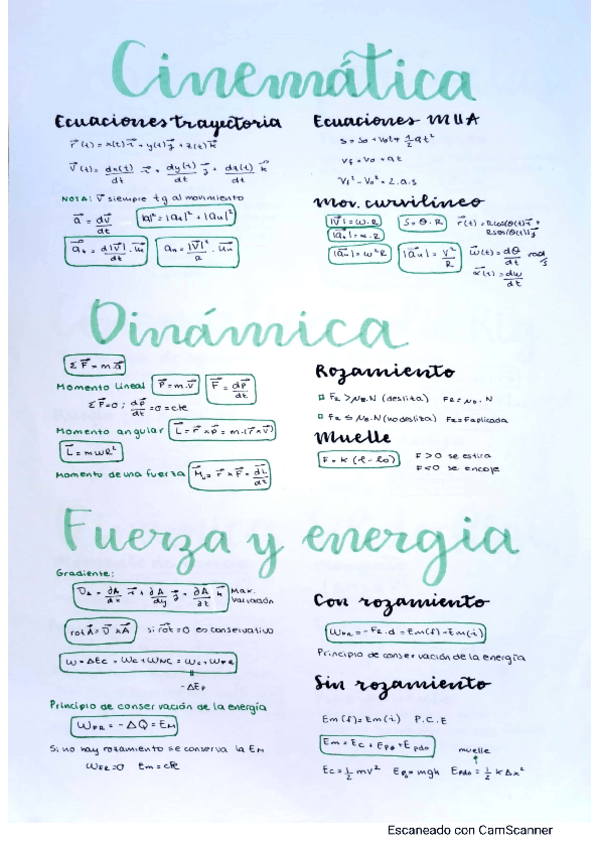 Cinemática
Ecuaciones trayectoria
r⃗(t) = x(t)i⃗ + y(t)j⃗ + z(t)k⃗
V⃗(t) = dx(t)/dt · i⃗ + dy(t)/dt j⃗ + dz(t)/dt k⃗
NOTA: V⃗ siempre tg al movimiento
a⃗ = dv⃗/dt
|a|² = |at|² + |an|²
a⃗t = d|V⃗|/dt · u⃗t
an = |V⃗|²/R · u⃗n
Ecuaciones MUA
s = so + vot + ½at²
Vf = Vo + at
Vf² - Vo² = 2.a.s
Mov. curvilíneo
|V⃗| = ω.R
S = θ.R
r⃗(t) = Rcos(θ(t))i⃗ +
|a⃗t| = α.R
|a⃗n| = ω²R
|a⃗n| = V²/R
ω⃗(t) = dθ/dt rad/s
α⃗(t) = dω/dt
Dinámica
ΣF⃗ = m.a⃗
Momento lineal P⃗ = m.v⃗ F⃗ = dp⃗/dt
ΣF⃗=0 ; dp⃗/dt = 0 = cte
Momento angular L⃗ = r⃗ x p⃗ = m.(r⃗ x v⃗)
L⃗ = mωR²
Momento de una fuerza M⃗o = r⃗ x F⃗ = dL⃗/dt
Rozamiento
FR > μe.N (desliza) FR = μd.N
FR ≤ μe.N (no desliza) FR = Faplicada
Muelle
F = K (l - lo)
F > 0 se estira
F < 0 se encoje
Fuerza y energia
Gradiente:
∇A = ∂A/∂x i⃗ + ∂A/∂y j⃗ + ∂A/∂z k⃗ Max. variación
rot A⃗ = ∇⃗ x A⃗ si rot = 0 es conservativo
W = ΔEc = Wc + WNC = Wc + WFR
-ΔEp
Principio de conservación de la energía
WFR = -ΔQ = EM
Si no hay rozamiento se conserva la EM
WFR = 0 Em = cte
Con rozamiento
WFR = -FR.d = Em(f) - Em(i)
Principio de conservación de la energía
Sin rozamiento
Em(f) = Em(i) P.C.E
Em = Ec + Epg + Epelo
muelle
Ec = ½ mv² Epg = mgh Epelo = ½ k Δx²
Escaneado con CamScanner